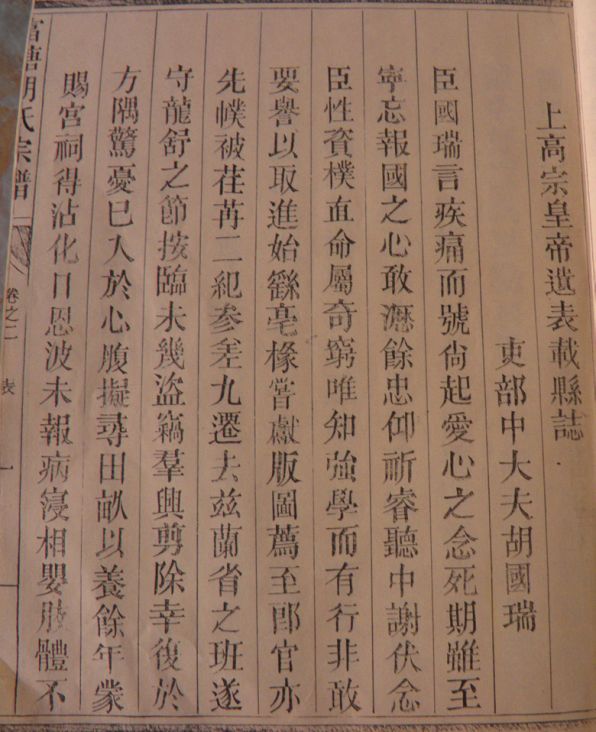 上高宗皇帝遺表載縣誌
吏部中大夫胡國瑞
臣國瑞言疾痛而號尙起愛心之念死期雖至
寧忘報國之心敢瀝餘忠仰祈睿聽中謝伏念
臣性資樸直命屬奇窮唯知強學而有行非敢
要譽以取進始繇亳椽嘗獻版圖薦至郎官亦
先幞被荏苒二紀參差九遷去兹蘭省之班遂
守龍舒之節按臨未幾盜竊羣興剪除幸復於
方隅驚憂已入於心腹擬尋田畝以養餘年蒙
賜宮祠得沾化日恩波未報病寖相嬰肢體不
富塘胡氏宗譜
卷之二
表
一